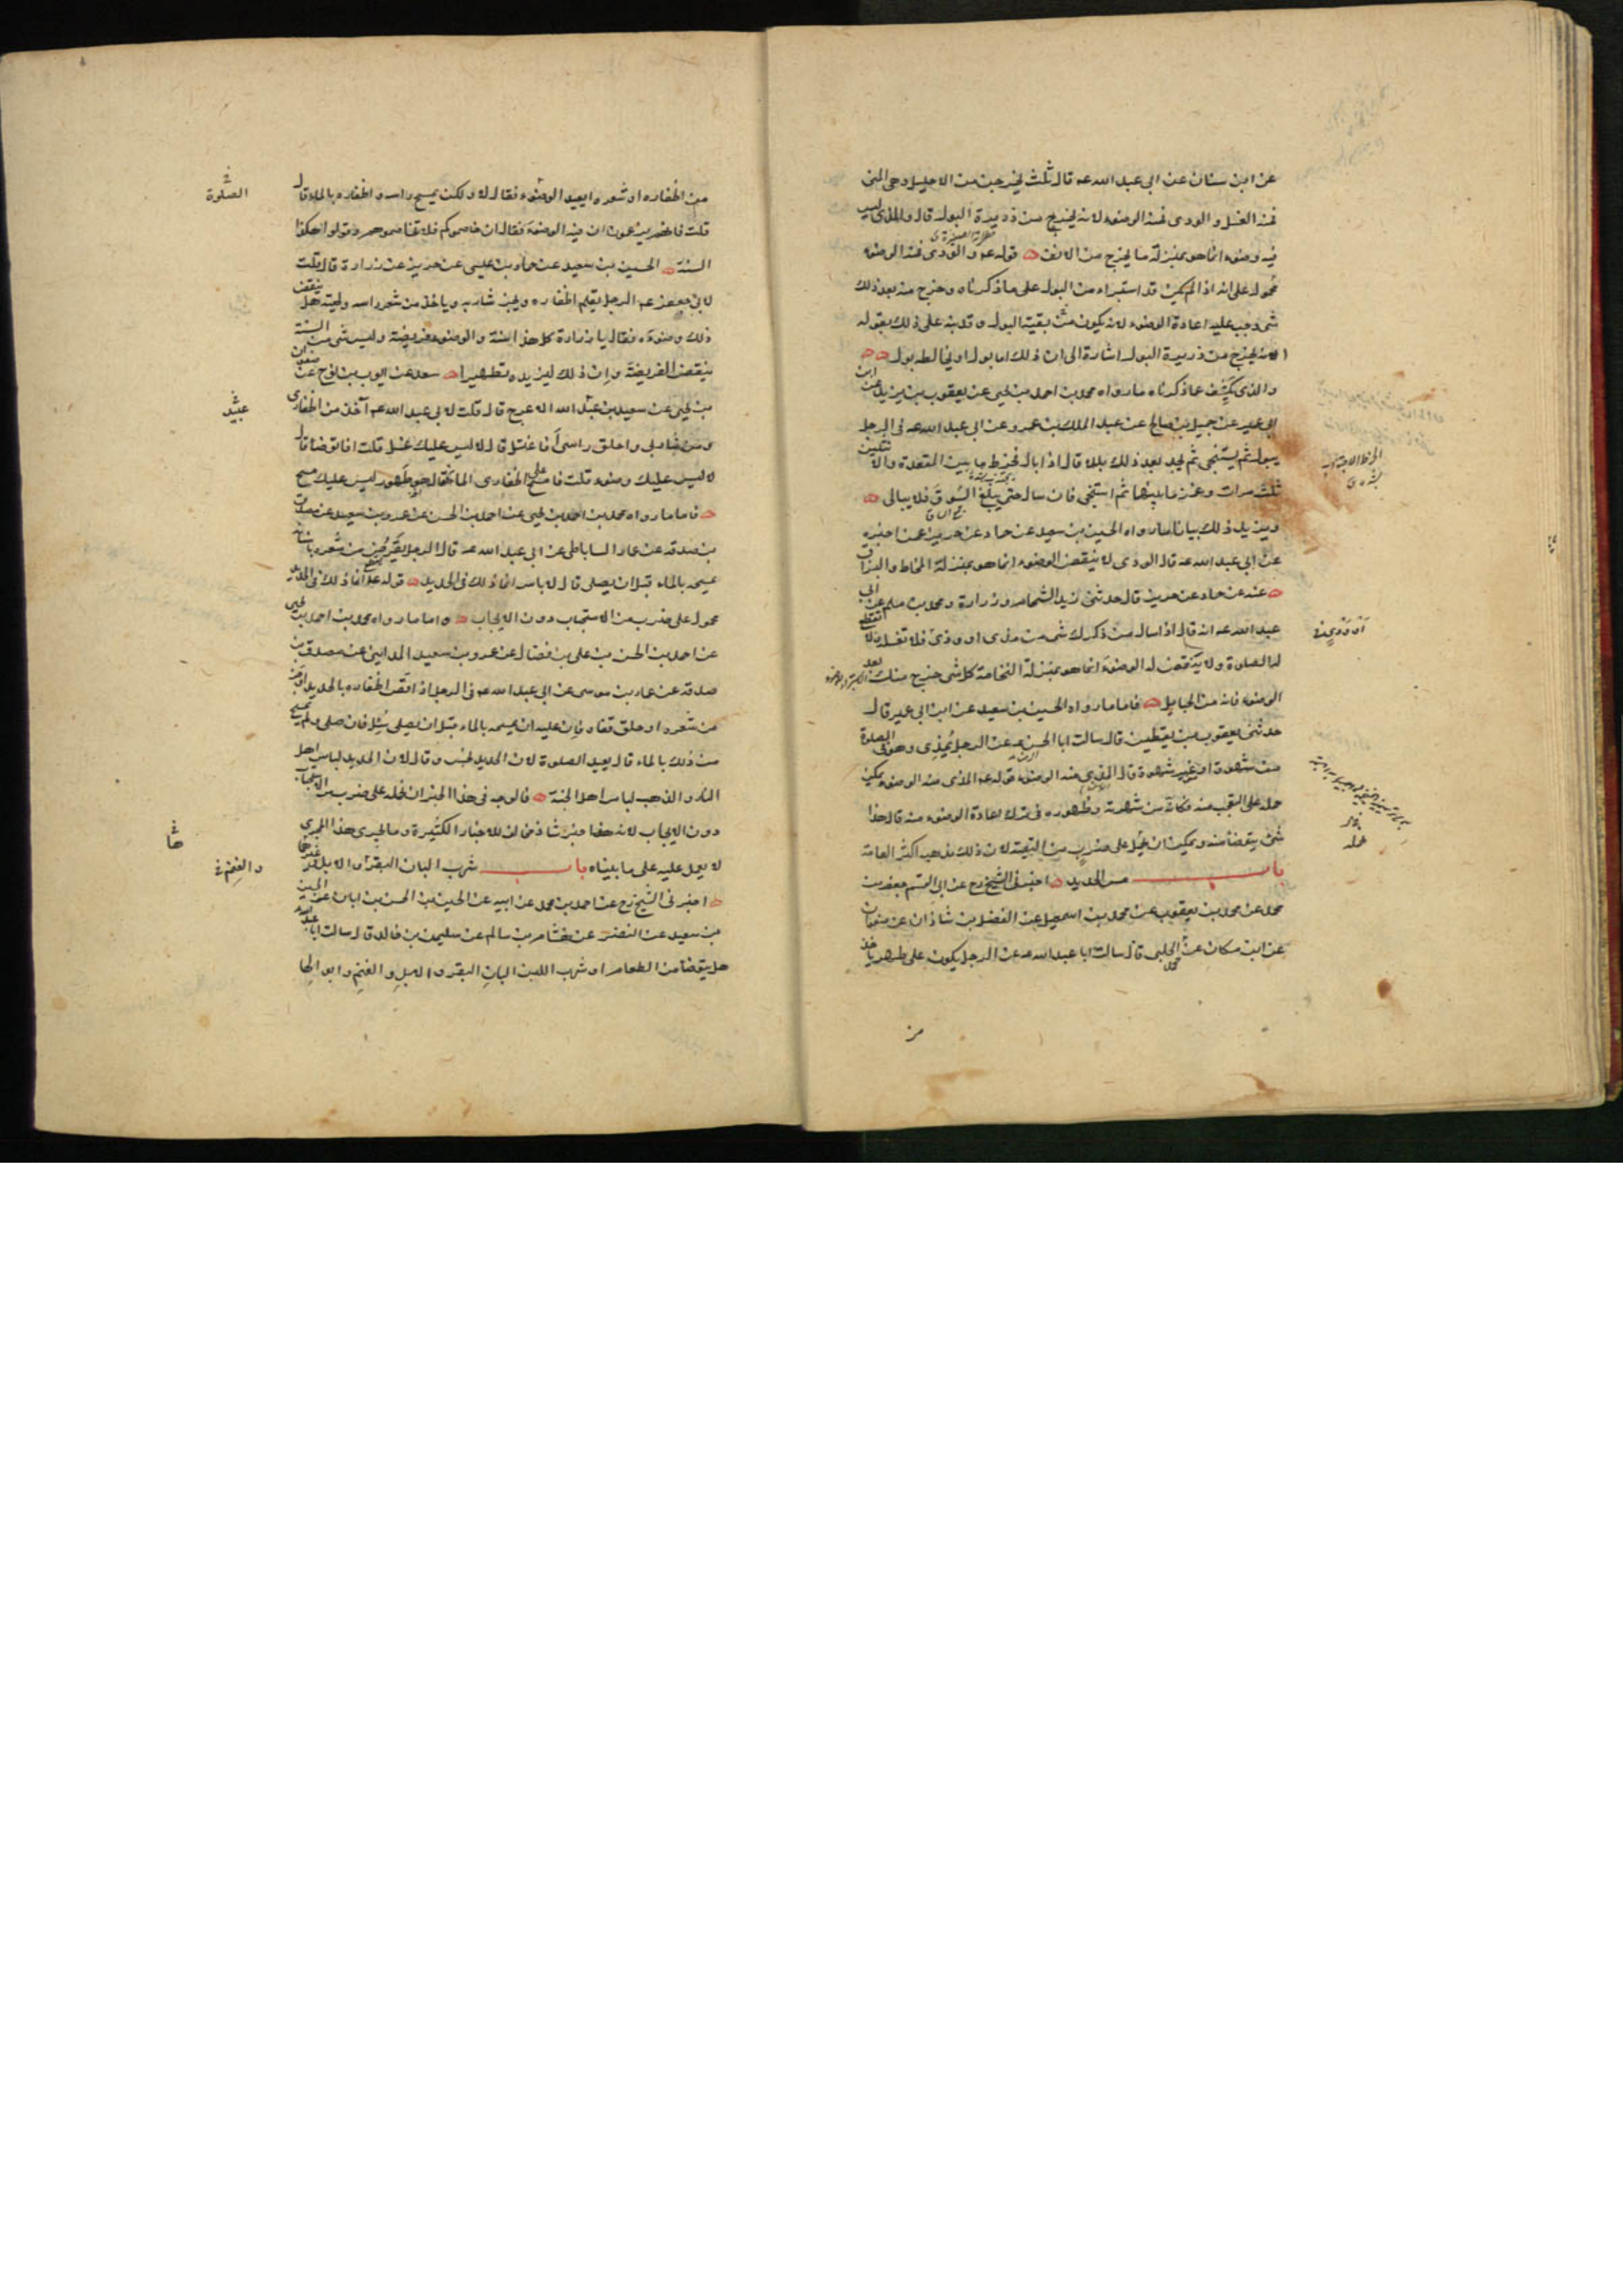 عن ابن سنان عن ابى عبد الله عه قال ثلث يخرجن من الاحليل وهى المنى
فمنه الغسل والودى فمنه الوضوء لانه يخرج من دريرة البول قال والمذى ليس
فيه وضوء انما هو بمنزلة ما يخرج من الانف قوله عه والودى فمنه الوضوء
محمول على انه اذا لم يكن قد استبراء من البول على ما ذكرناه وخرج منه بعد ذلك
شى وجب عليه اعادة الوضوء لانه يكون من بقية البول وقد نبه على ذلك بقوله
لانه يخرج من دريرة البول اشارة الى ان ذلك اما بول او يخالطه بول
والذى يكشف عما ذكرناه ما رواه محمد بن احمد بن يحيى عن يعقوب بن يزيد عن ابن
ابى عمير عن جميل بن صالح عن عبد الملك بن عمرو عن ابى عبد الله عه فى الرجل
يبول ثم يستنجى ثم يجد بعد ذلك بللا قال اذا بال فخرط ما بين المقعدة والانثيين
ثلث مرات وغمز ما بينهما ثم استنجى فان سال حتى يبلغ السوق فلا يبالى
ويزيد ذلك بيانا ما رواه الحسين بن سعيد عن حماد عن حريز عمن اخبره
عن ابى عبد الله عه قال الودى لا ينقض الوضوء انما هو بمنزلة المخاط والبزاق
عنه عن حماد عن حريز قال حدثنى زيد الشحام وزرارة ومحمد بن مسلم عن ابى
عبد الله عه انه قال اذا سال من ذكرك شى من مذى او وذى فلا تغسله ولا تقطع
له الصلوة ولا ينقض له الوضوء انما هو بمنزلة النخامة كل شى خرج منك بعد
الوضوء فانه من الحبايل فاما ما رواه الحسين بن سعيد عن ابن ابى عمير قال
حدثنى يعقوب بن يقطين قال سالت ابا الحسن عه عن الرجل يمذى وهو فى الصلوة
من شهوة او غير شهوة قال المذى منه الوضوء قوله عه المذى منه الوضوء يمكن
حمله على التعجب منه فكانه من شهرته وظهوره فى ترك اعادة الوضوء منه قال هذا
شى يتوضا منه ويمكن ان نحمله على ضرب من التقية لان ذلك مذهب اكثر العامة
باب مس الحديد اخبرنى الشيخ رح عن ابى القسم جعفر بن
محمد عن محمد بن يعقوب عن محمد بن اسمعيل عن الفضل بن شاذان عن صفوان
عن ابن مسكان عن محمد الحلبى قال سالت ابا عبد الله عه عن الرجل يكون على طهر ياخذ
من
من اظفاره او شعره ايعيد الوضوء فقال لا ولكن يمسح راسه واظفاره بالماء قال
قلت فانهم يزعمون ان فيه الوضوء فقال ان خاصموكم فلا تخاصموهم وقولوا هكذا
السنة الحسين بن سعيد عن حماد بن عيسى عن حريز عن زرارة قال قلت
لابى جعفر عه الرجل يقلم اظفاره ويجز شاربه وياخذ من شعر راسه ولحيته هل ينقض
ذلك وضوءه فقال يا زرارة كل هذا سنة والوضوء فريضة وليس شى من السنة
ينقض الفريضة وان ذلك ليزيده تطهيرا سعد عن ايوب بن نوح عن صفوان
بن يحيى عن سعيد بن عبد الله الاعرج قال قلت لابى عبد الله عه آخذ من اظفارى
ومن شاربى واحلق راسى أفاغتسل قال لا ليس عليك غسل قلت افاتوضا قال
لا ليس عليك وضوء قلت فامسح على اظفارى الماء فقال هو طهور ليس عليك مسح
فاما ما رواه محمد بن احمد بن يحيى عن احمد بن الحسن عن عمرو بن سعيد عن مصدق
بن صدقه عن عمار الساباطى عن ابى عبد الله عه قال الرجل يقرض من شعره باسنانه
يمسحه بالماء قبل ان يصلى قال لا باس انما ذلك فى الحديد قوله عه انما ذلك فى الحديد
محمول على ضرب من الاستحباب دون الايجاب واما ما رواه محمد بن احمد بن يحيى
عن احمد بن الحسن بن على بن فضال عن عمرو بن سعيد المداينى عن مصدق بن
صدقه عن عمار بن موسى عن ابى عبد الله عه فى الرجل اذا قص اظفاره بالحديد او جز
من شعره او حلق قفاه فان عليه ان يمسحه بالماء قبل ان يصلى سئل فان صلى ولم يمسح
من ذلك بالماء قال يعيد الصلوة لان الحديد نجس وقال لان الحديد لباس اهل
النار والذهب لباس اهل الجنة فالوجه فى هذا الخبر ان نحمله على ضرب من الاستحباب
دون الايجاب لانه خبر شاذ مخالف للاخبار الكثيرة وما يجرى هذا المجرى
لا يعمل عليه على ما بيناه باب شرب البان البقر والابل وغيرهما
اخبرنى الشيخ رح عن احمد بن محمد عن ابيه عن الحسين بن الحسن بن ابان عن الحسين
بن سعيد عن النضر عن هشام بن سالم عن سليمن بن خالد قال سالت ابا عبد الله
هل يتوضا من الطعام او شرب اللبن البان البقر والابل والغنم وابوالها
الصلوة
عبيد
والغنم